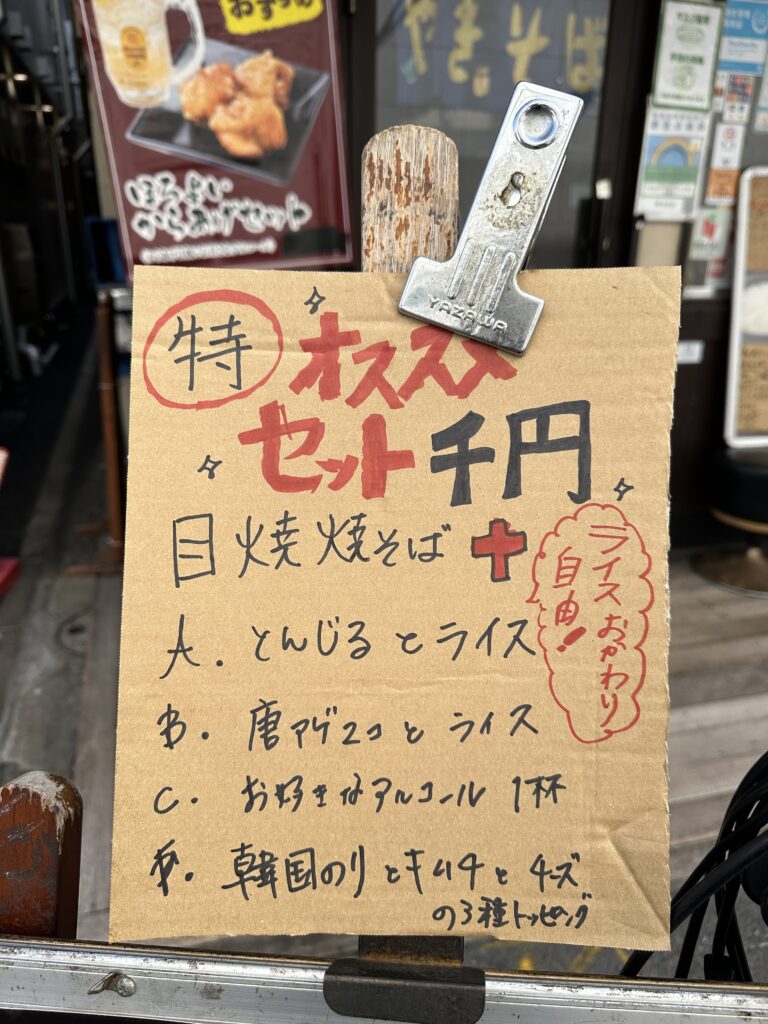 ほろよい
からあげセット
YAZAWA
特
オススメ
セット千円
目焼焼そば+
ライスおかわり
自由!
A. とんじるとライス
B. 唐アゲ2コとライス
C. お好きなアルコール1杯
D. 韓国のりとキムチとチーズ
の3種トッピング